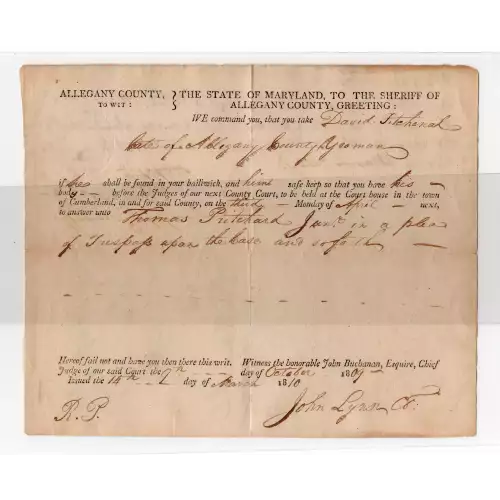 ALLEGANY COUNTY, } THE STATE OF MARYLAND, TO THE SHERIFF OF
TO WIT : ALLEGANY COUNTY, GREETING :
WE command you, that you take David
late of Allegany County Yeoman
if he shall be found in your bailiwick, and him safe keep so that you have his
body before the Judges of our next County Court, to be held at the Court house in the town
of Cumberland, in and for said County, on the third Monday of April next,
to answer unto Thomas Pritchard Junr. in a plea
of Trespass upon the case and so forth
Hereof fail not and have you then there this writ. Witness the honorable John Buchanan, Esquire, Chief
Judge of our said Court the day of October 1809
Issued the 14th day of March 1810
R. P. John Lynn Ck.